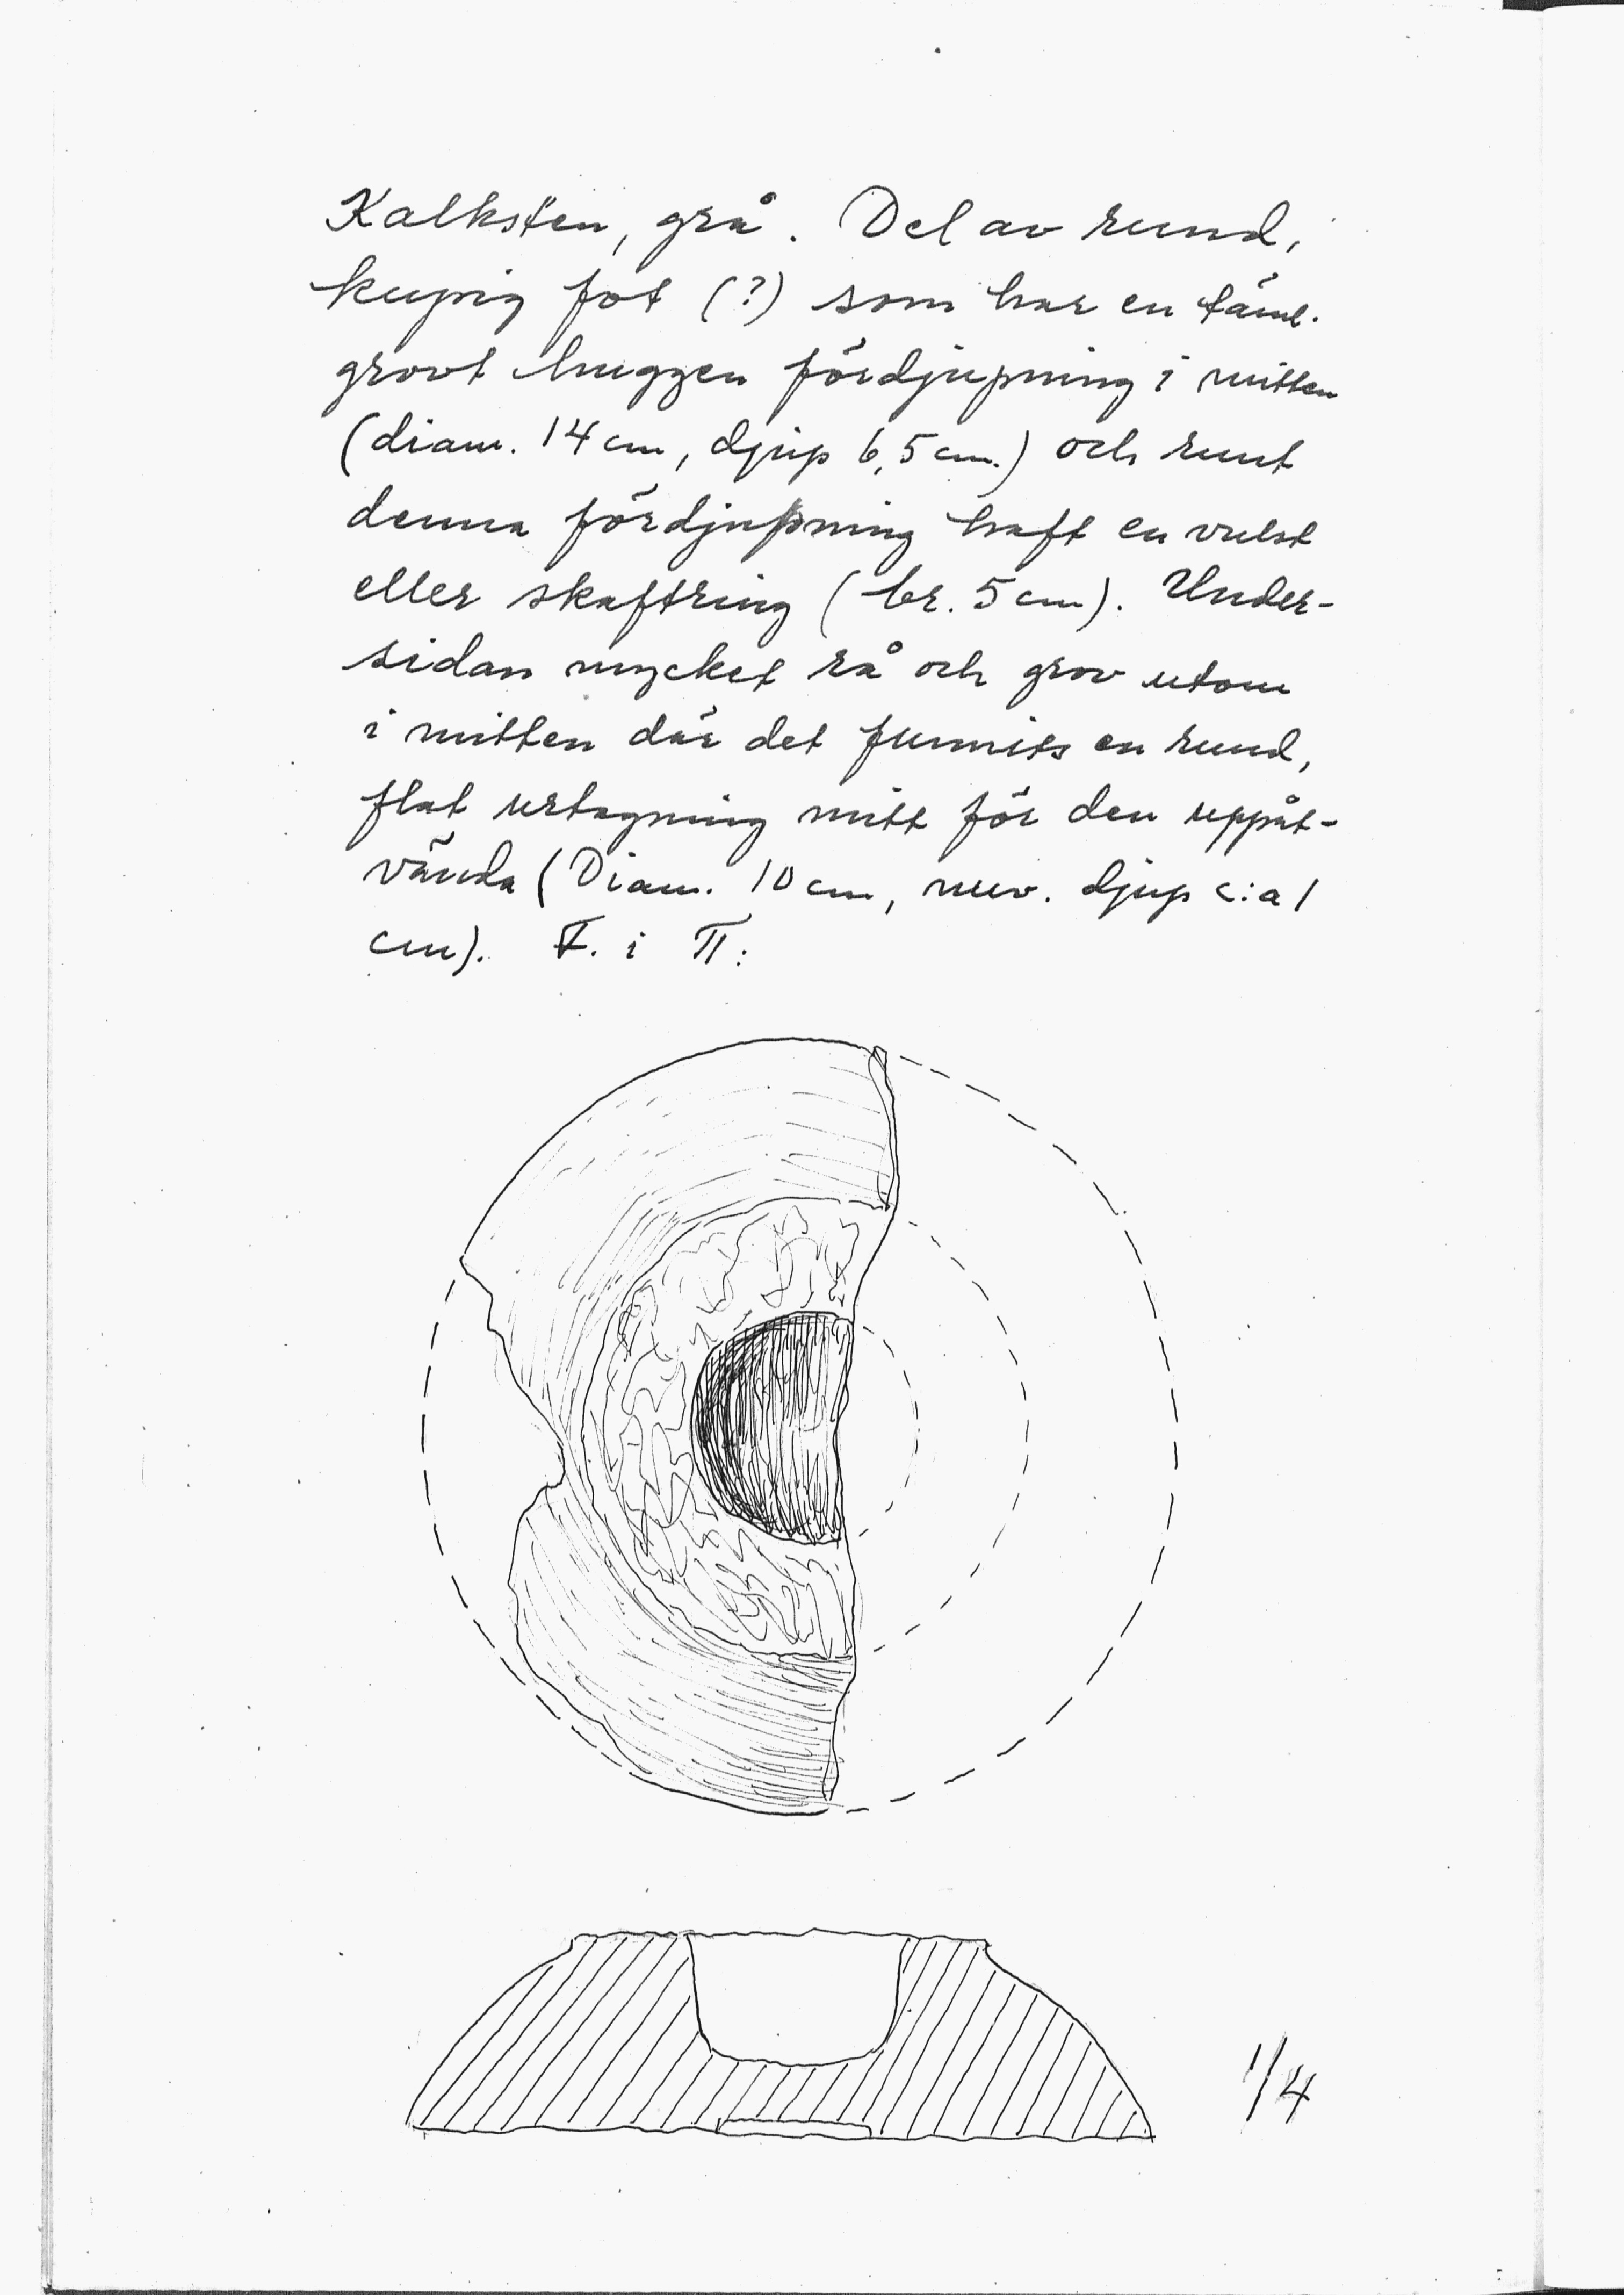 Kalksten, grå. Del av rund,
kupig fot (?) som har en täml.
grovt huggen fördjupning i mitten
(diam. 14 cm, djup 6,5 cm.) och runt
denna fördjupning haft en vulst
eller skaftring (br. 5 cm). Under-
sidan mycket rå och grov utom
i mitten där det funnits en rund,
flat urtagning mitt för den uppåt-
vända (Diam. 10 cm, nuv. djup c:a 1
cm). F. i TT:
1/4